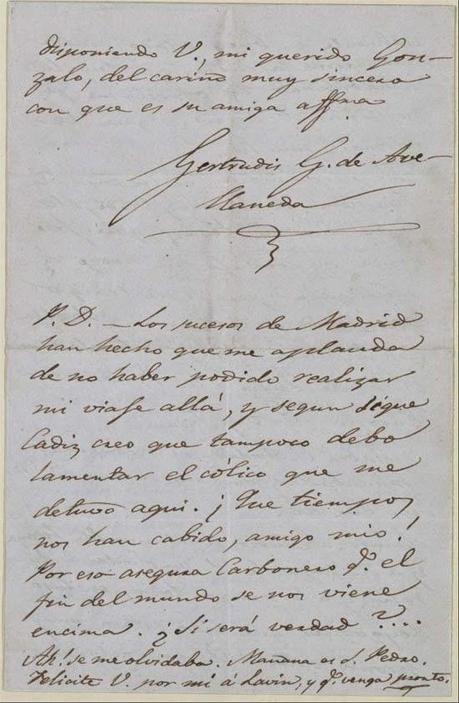 disponiendo V., mi querido Gon-
zalo, del cariño muy sincero
con que es su amiga affma
Gertrudis G. de Ave-
llaneda
P. D. — Los sucesos de Madrid
han hecho que me aplauda
de no haber podido realizar
mi viaje allá, y segun sigue
Cadiz creo que tampoco debo
lamentar el cólico que me
detuvo aqui. ¡Que tiempos
nos han cabido, amigo mio!
Por eso asegura Carbonero q.e el
fin del mundo se nos viene
encima. ¿Si será verdad?...
Ah! se me olvidaba. Mañana es S. Pedro.
Felicite V. por mi á Lavin, y q.e venga pronto.